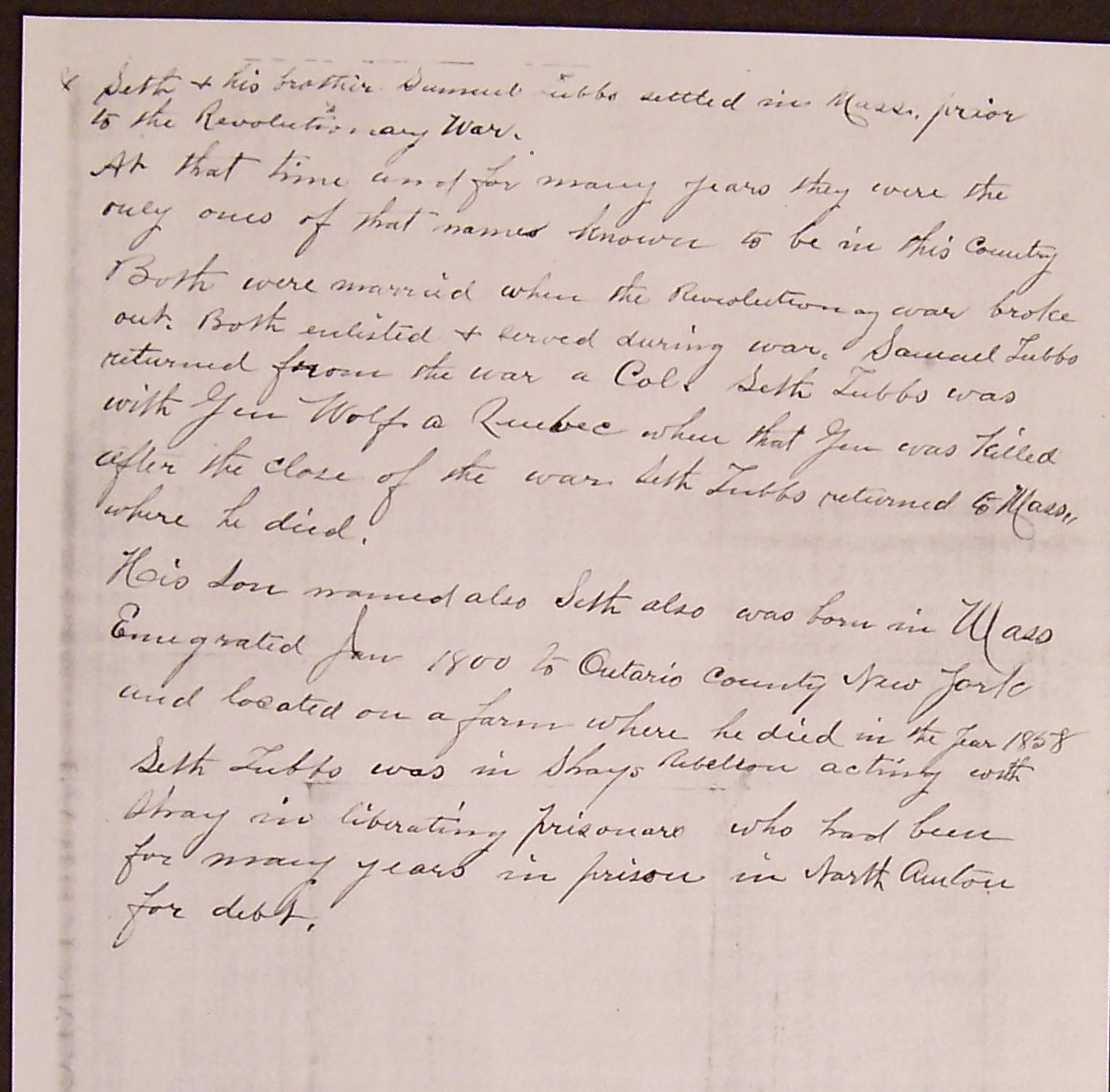 x Seth + his brother Samuel ubbs settled in Mass. prior
to the Revolutionary War.
At that time and for many years they were the
only ones of that names known to be in this Country
Both were married when the Revolutionary war broke
out. Both enlisted + served during war. Samuel Tubbs
returned from the war a Col. Seth Tubbs was
with Gen Wolf a Quebec when that Gen was killed
after the close of the war Seth Tubbs returned to Mass,,
where he died.
His Son named also Seth also was born in Mass
Emegrated Jan 1800 to Ontario County New York
and located on a farm where he died in the year 1858
Seth Tubbs was in Shays Rebelion acting with
Shay in liberating prisonars who had been
for many years in prison in North
for debt.